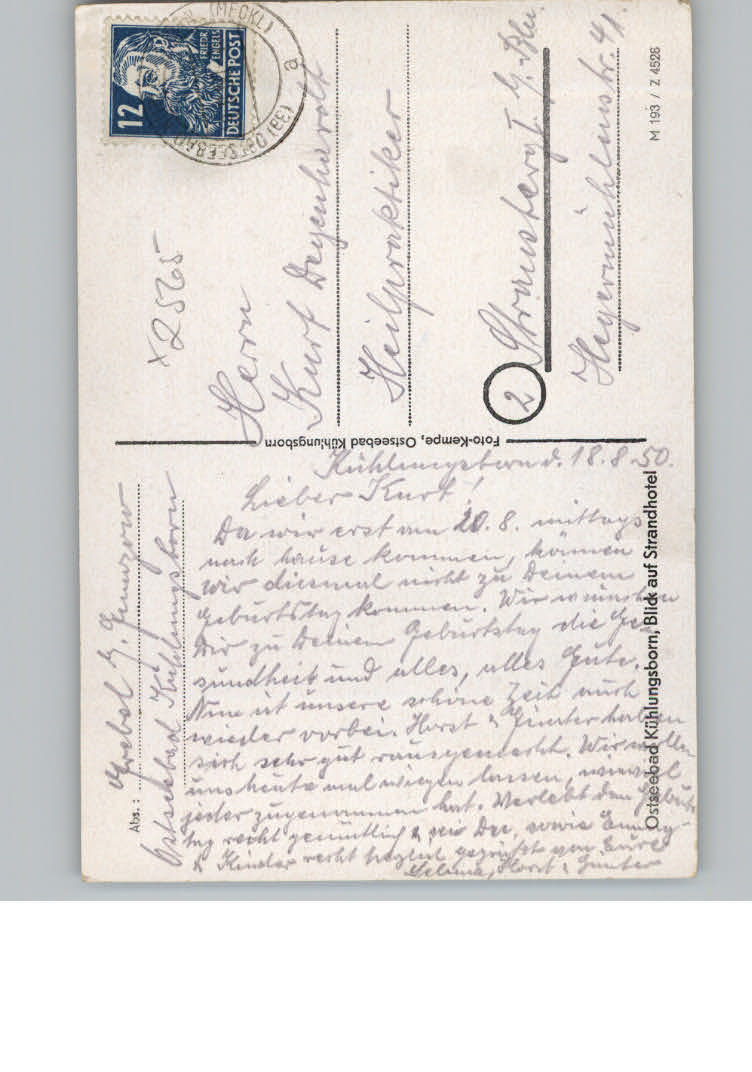 Abs.:
Ostseebad Kühlungsborn
Kühlungsborn d. 18.8.50.
Lieber Kurt!
Da wir erst am 20.8. mittags
nach hause kommen, können
wir diesmal nicht zu Deinem
Geburtstag kommen. Wir wünschen
Dir zu Deinem Geburtstag die Ge-
sundheit und alles, alles Gute.
Nun ist unsere schöne Zeit auch
wieder vorbei. Horst & Günter haben
sich sehr gut rausgemacht. Wir wollen
uns heute mal wiegen lassen, wieviel
jeder zugenommen hat. Verlebt den Geburts-
tag recht gemütlich & sei Du, sowie
& Kinder recht herzlich gegrüßt von Eure
Horst & Günter
Ostseebad Kühlungsborn, Blick auf Strandhotel
Foto-Kempe, Ostseebad Kühlungsborn
12
DEUTSCHE POST
FRIEDR. ENGELS
(MECKL)
OSTSEEBAD
a
x2565
Herrn
Kurt Degenhardt
Heilpraktiker
2
Strausberg I
Hegermühlenstr. 41.
M 193 / Z 4526